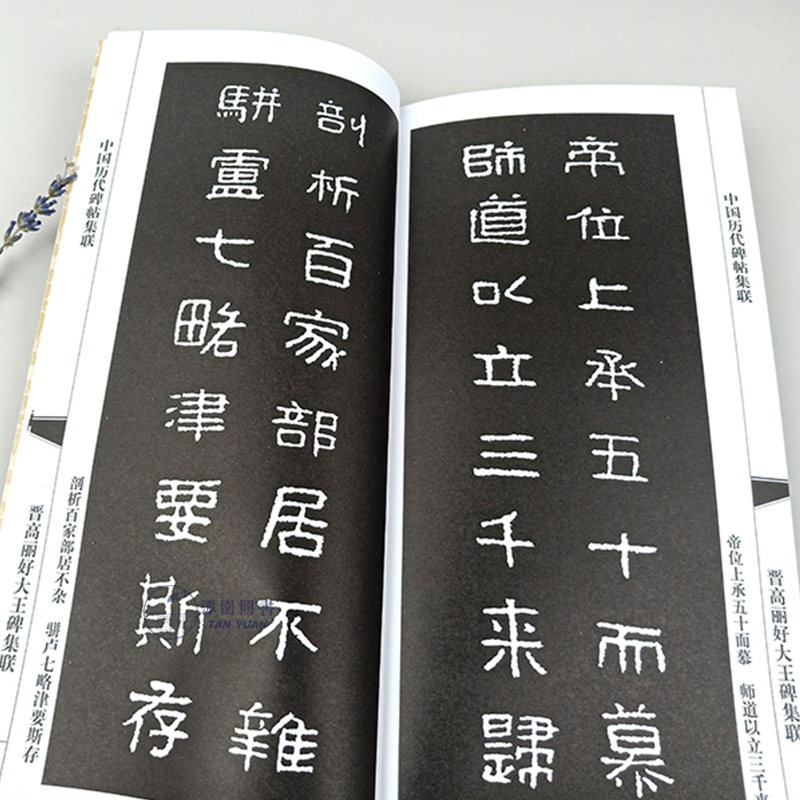 中国历代碑帖集联
帝位上承五十而慕
師道以立三千来歸
帝位上承五十而慕 师道以立三千来
晋高丽好大王碑集联
剖析百家部居不雜
駢盧七略津要斯存
中国历代碑帖集联
剖析百家部居不杂 骈卢七略津要斯存
晋高丽好大王碑集联
潭園圖書
TAN YUAN